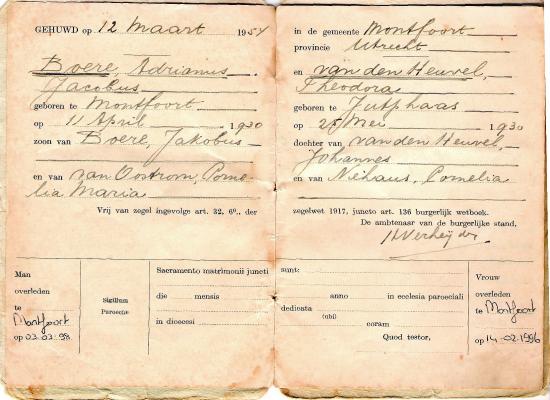 GEHUWD op 12 Maart 1954
Boere, Adrianus
Jacobus
geboren te Montfoort
op 11 April 1930
zoon van Boere, Jakobus
en van van Oostrom, Corne-
lia Maria
Vrij van zegel ingevolge art. 32, 6°., der
in de gemeente Montfoort
provincie Utrecht
en van den Heuvel,
Theodora
geboren te Jutphaas
op 25 Mei 1930
dochter van van den Heuvel,
Johannes
en van Niehaus, Cornelia
zegelwet 1917, juncto art. 136 burgerlijk wetboek.
De ambtenaar van de burgerlijke stand,
Man
overleden
te
Montfoort
op 03-03-98
Sigillum
Parochiæ
Sacramento matrimonii juncti sunt:
die mensis anno in ecclesia parochiali
dedicata
in dioecesi (ubi) coram
Quod testor,
Vrouw
overleden
te
Montfoort
op 14-02-1996